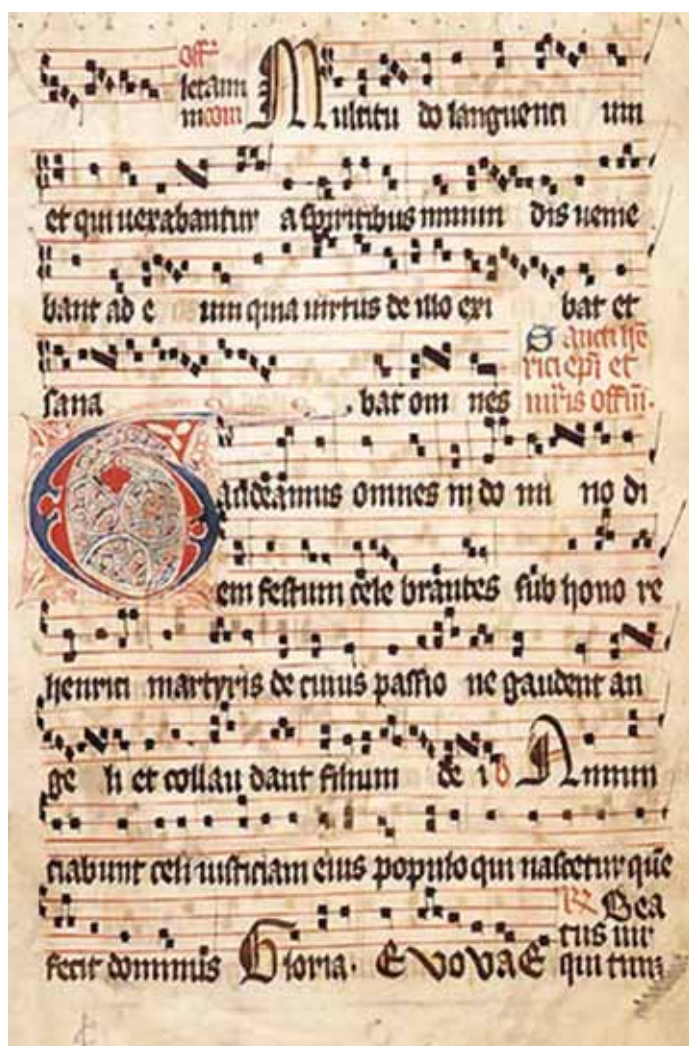 Off̃
letami
ni com Multitu do languenti um
et qui uexabantur a spiritibus inmun dis uenie
bant ad e um quia uirtus de illo exi bat et
sana bat om nes
Sancti hē
rici ep̃i et
m̃ris offm̃.
Gaudeamus omnes in do mi no di
em festum cele brantes sub hono re
henrici martyris de cuius passio ne gaudent an
ge li et collau dant filium de i V Annun
ciabunt celi iusticiam eius populo qui nascetur quē
fecit dominus Gloria. E V O V A E
R̃ Bea
tus uir
qui tim